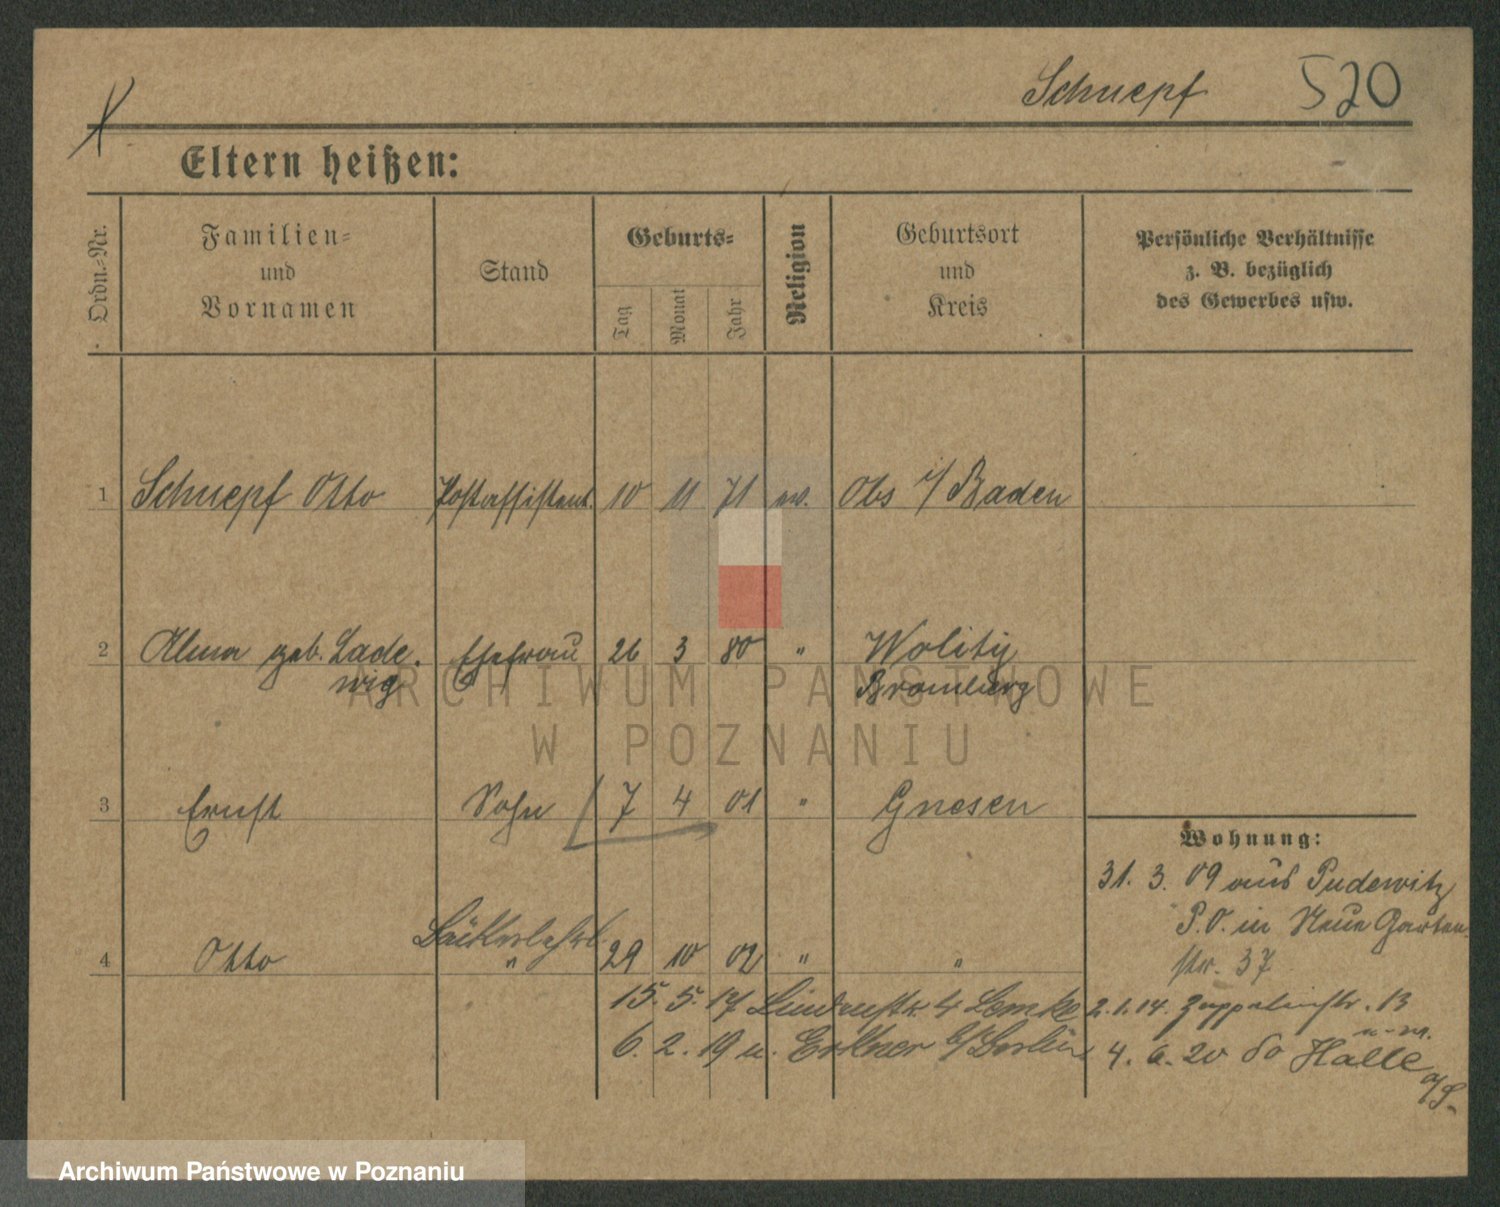 Schnepf 520
Eltern heißen:
Ordn.-Nr.
Familien-
und
Vornamen
Stand
Geburts-
Tag
Monat
Jahr
Religion
Geburtsort
und
Kreis
Persönliche Verhältnisse
z. B. bezüglich
des Gewerbes usw.
1 Schnepf Otto Postassistent. 10 11 71 ev. Obs i/Baden
2 Alma geb. Lade- Ehefrau 26 3 80 " Wolitz
wig Bromberg
3 Ernst Sohn 7 4 01 " Gnesen
Wohnung:
31. 3. 09 aus Pudewitz
P.O. in Neue Garten-
str. 37
Bäckerlehrl.
4 Otto " 29 10 02 " "
15. 5. 17 Lindenstr. 4 Lemke 2. 1. 14. Zeppelinstr. 13
u. m.
6. 2. 19 n. Erkner b/Berlin 4. 6. 20 Halle
a/S.
ARCHIWUM PAŃSTWOWE
W POZNANIU
Archiwum Państwowe w Poznaniu